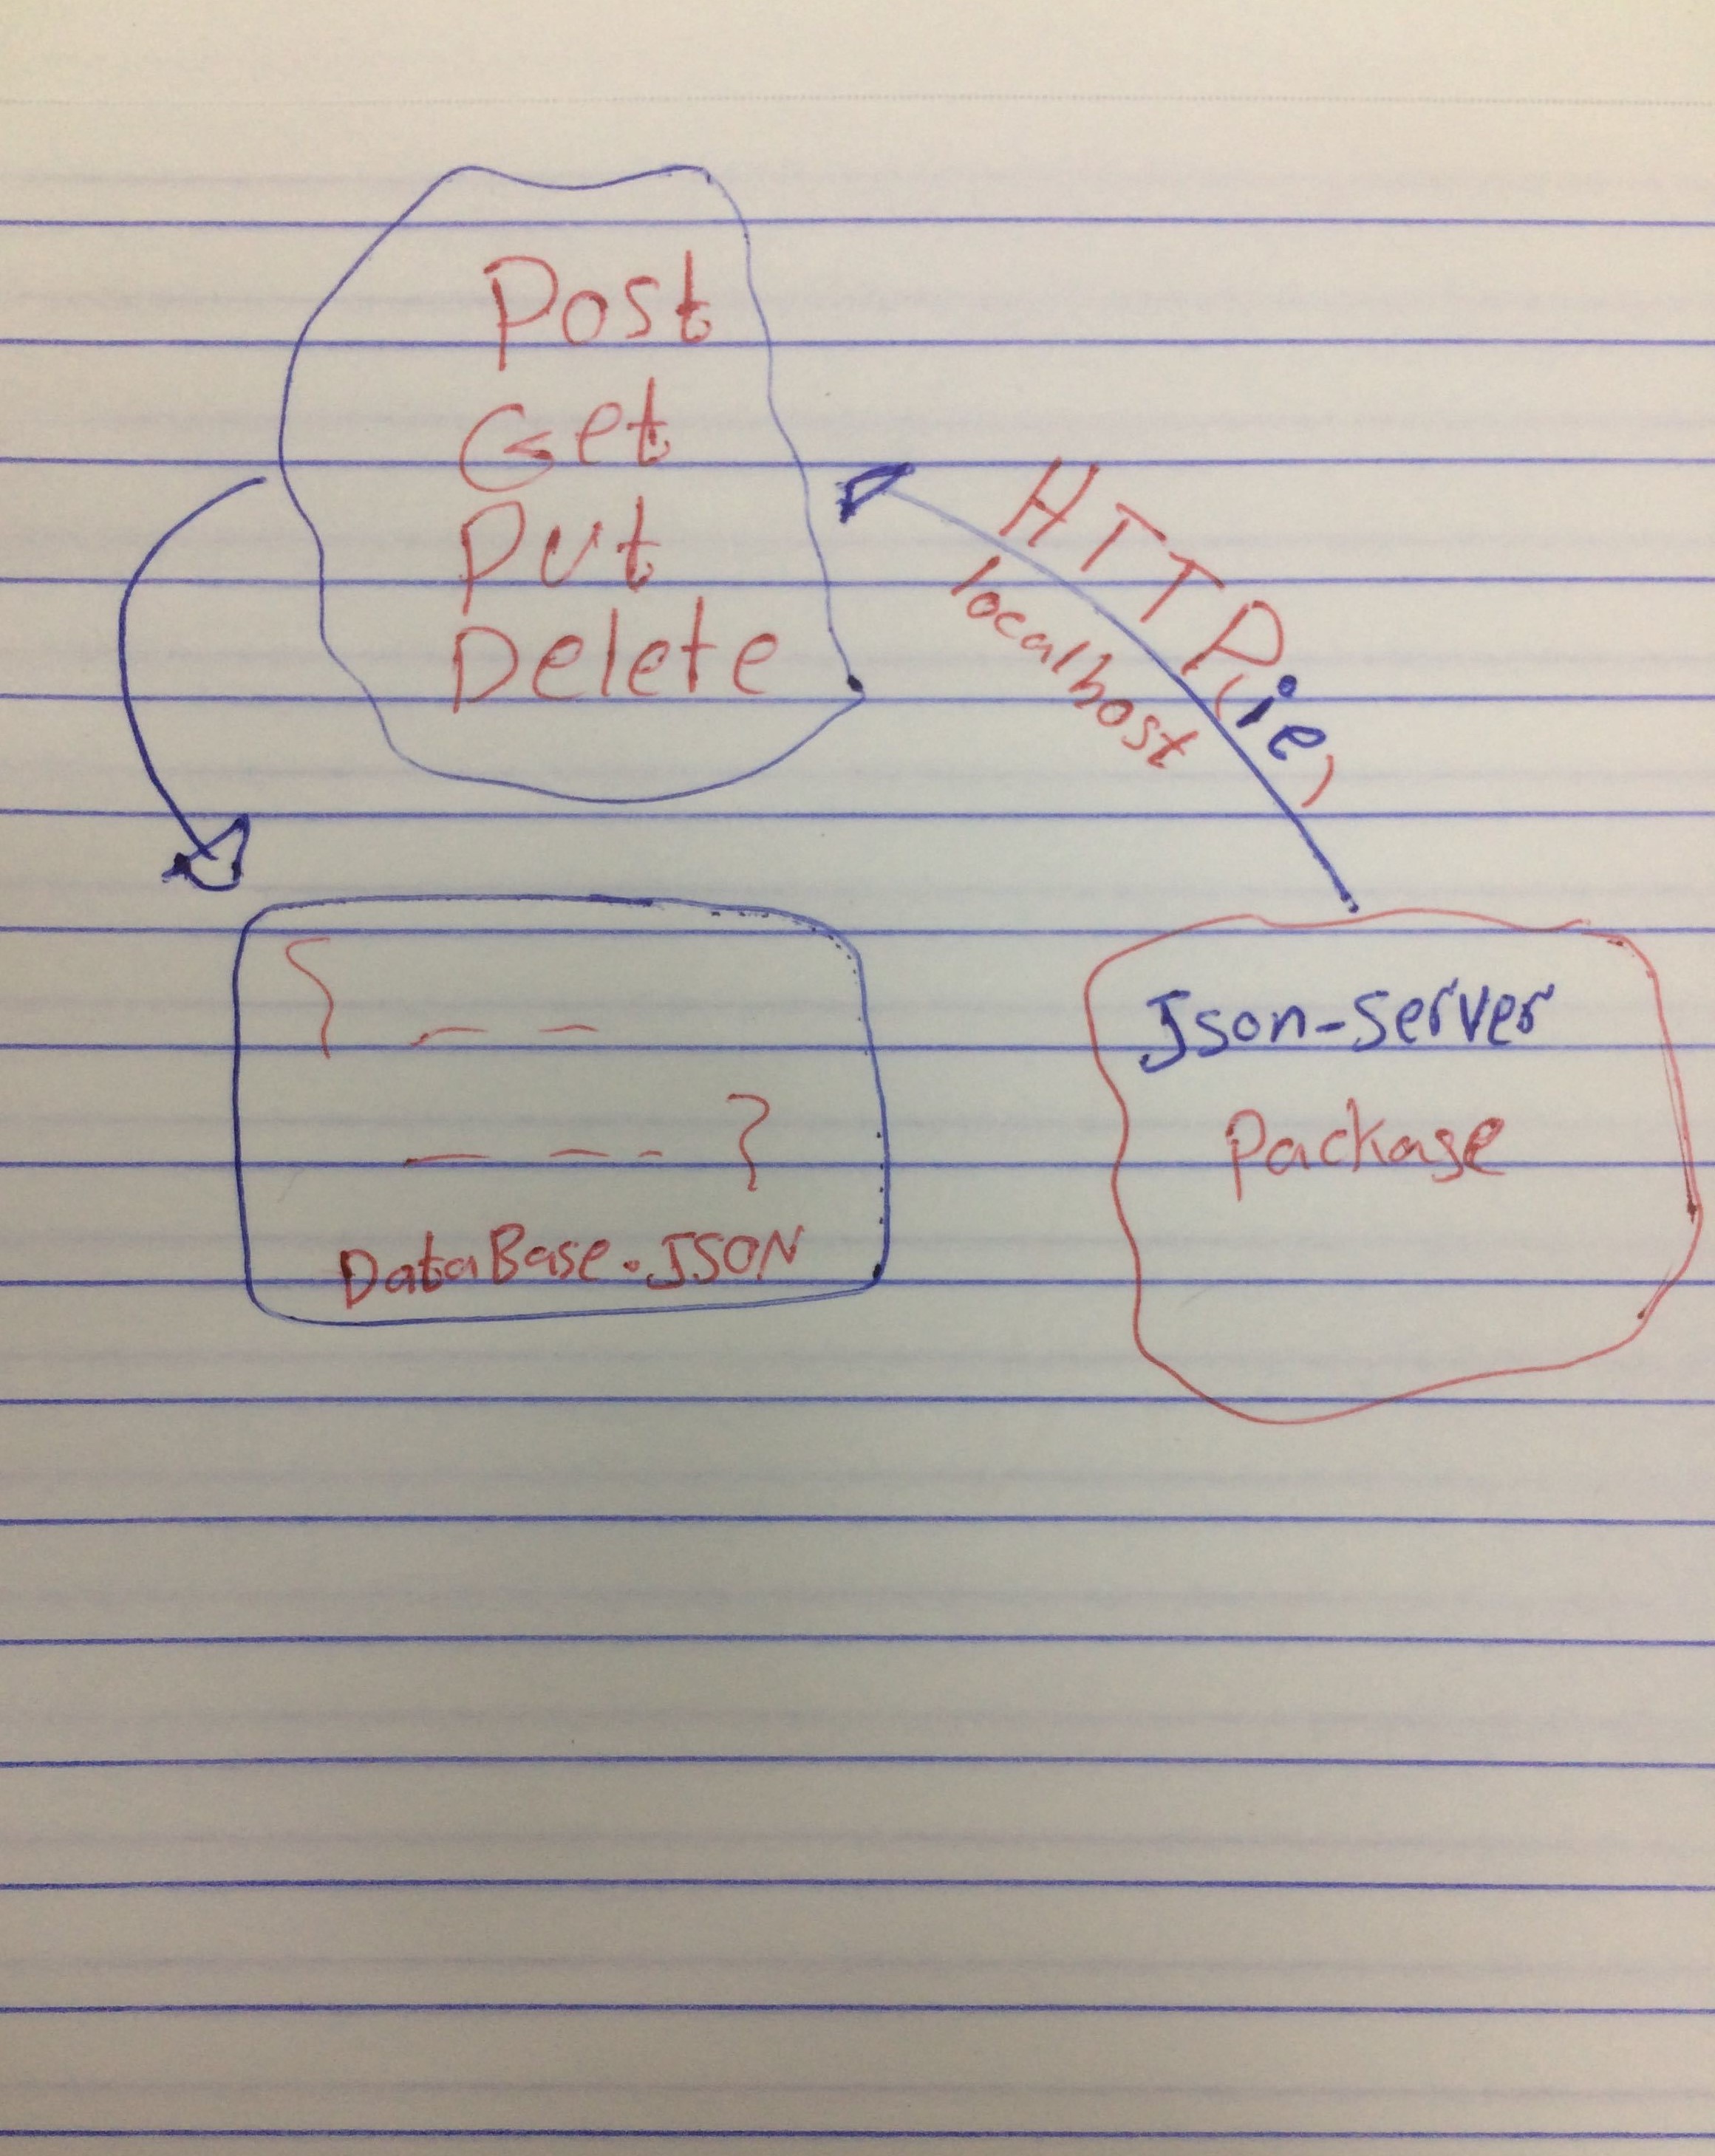 Post
Get
Put
Delete
HTTP(ie)
localhost
{ _ _
_ _ _ }
DataBase.JSON
Json-server
Package